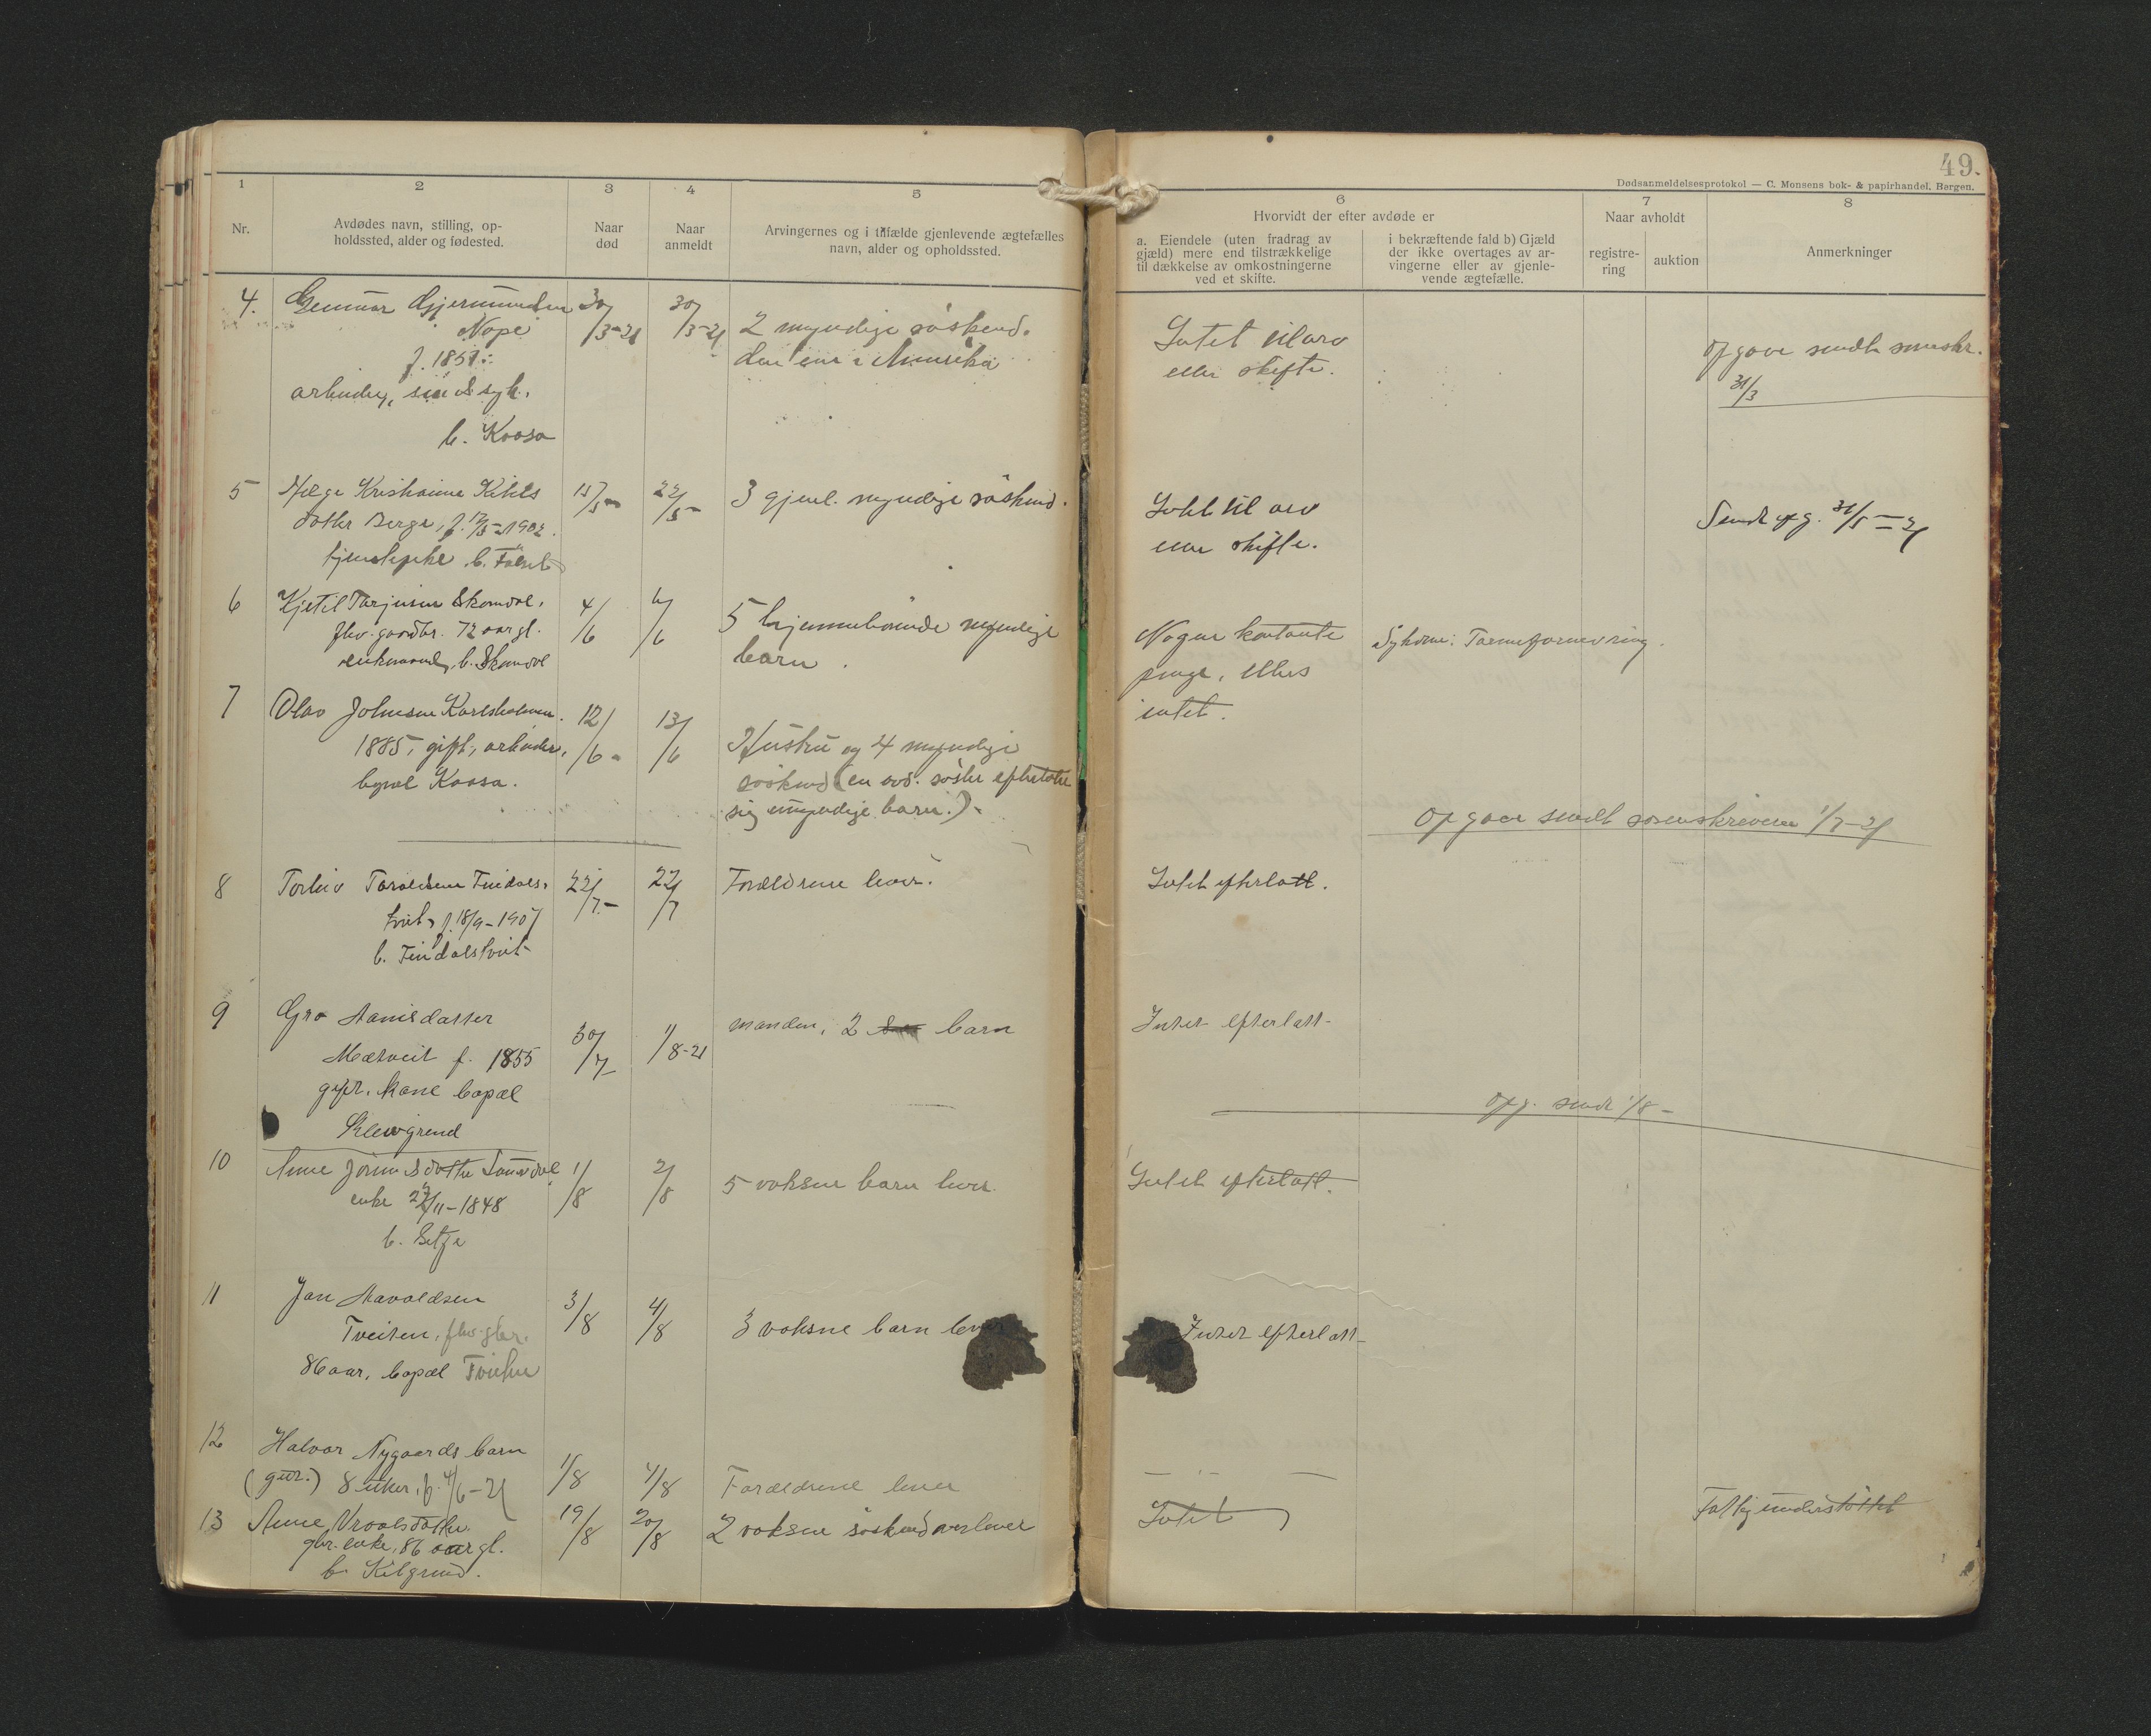 49.
Dødsanmeldelsesprotokol — C. Monsens bok- & papirhandel, Bergen.
1
2
3
4
5
6
7
8
Nr.
Avdødes navn, stilling, op-
holdssted, alder og fødested.
Naar
død
Naar
anmeldt
Arvingernes og i tilfælde gjenlevende ægtefælles
navn, alder og opholdssted.
Hvorvidt der efter avdøde er
a. Eiendele (uten fradrag av
gjæld) mere end tilstrækkelige
til dækkelse av omkostningerne
ved et skifte.
i bekræftende fald b) Gjæld
der ikke overtages av ar-
vingerne eller av gjenle-
vende ægtefælle.
Naar avholdt
registre-
ring
auktion
Anmerkninger
4.
Gunnar Gjermundsen
Nape
f. 1851
arbeider, sindssyk.
b. Kaasa
30/3-21
30/3-21
2 myndige søskend.
den ene i Amerika
Intet til arv
eller skifte.
Opgave sendt sorenskr.
31/3
5
Helge Kristiaine Kittels
datter Berge, f. 12/5-1902.
tjenestepike b.
15/5-
22/5-
3 gjenl. myndige søskend.
Intet til arv
eller skifte.
Sendt opg. 31/5-21
6
Kjetil Tarjeisen Skomdal,
fhv. gaardbr. 72 aar gl.
enkemand, b. Skomdal
4/6
6/6
5 hjemmeboende myndige
barn.
Nogen kontante
penge, ellers
intet.
Sykdom: Tarmeforsnevring.
7
Olav Johnsen Karlsholmen.
1885, gift, arbeider,
bopæl Kaasa.
12/6-
13/6
Hustru og 4 myndige
søskend (en død. søster efterlater
sig umyndige barn.)-
Opgave sendt sorenskriveren 1/7-21
8
Torleiv Taraldsen Findals-
tveit, f. 18/9-1907
b. Findalstveit
22/7-
27/7
Forældrene lever.
Intet efterlatt.
9
Gro Aanisdatter
Metveit f. 1855
gift. kone bopæl
Klevgrend
30/7-
1/8-21
manden, 2 barn
Intet efterlatt-
opg. sendt 1/8-
10
Anne Jørundsdotter
enke 27/11-1848
b. Betze
1/8
2/8
5 voksne barn lever.
Intet efterlatt.
11
Jon Aavaldsen
Tveiten, fhv. gbr.
86 aar, bopæl Tveiten
3/8
4/8
3 voksne barn lever
Intet efterlatt-
12
Halvor Nygaards barn
(gut.) 8 uker, f. 4/6-21
1/8
4/8
Forældrene lever
13
Anne Vraalsdatter
gbr. enke, 86 aar gl.
b. Kilgrend.
19/8
20/8
2 voksne søskend overlever
Intet
Fattigunderstøttet